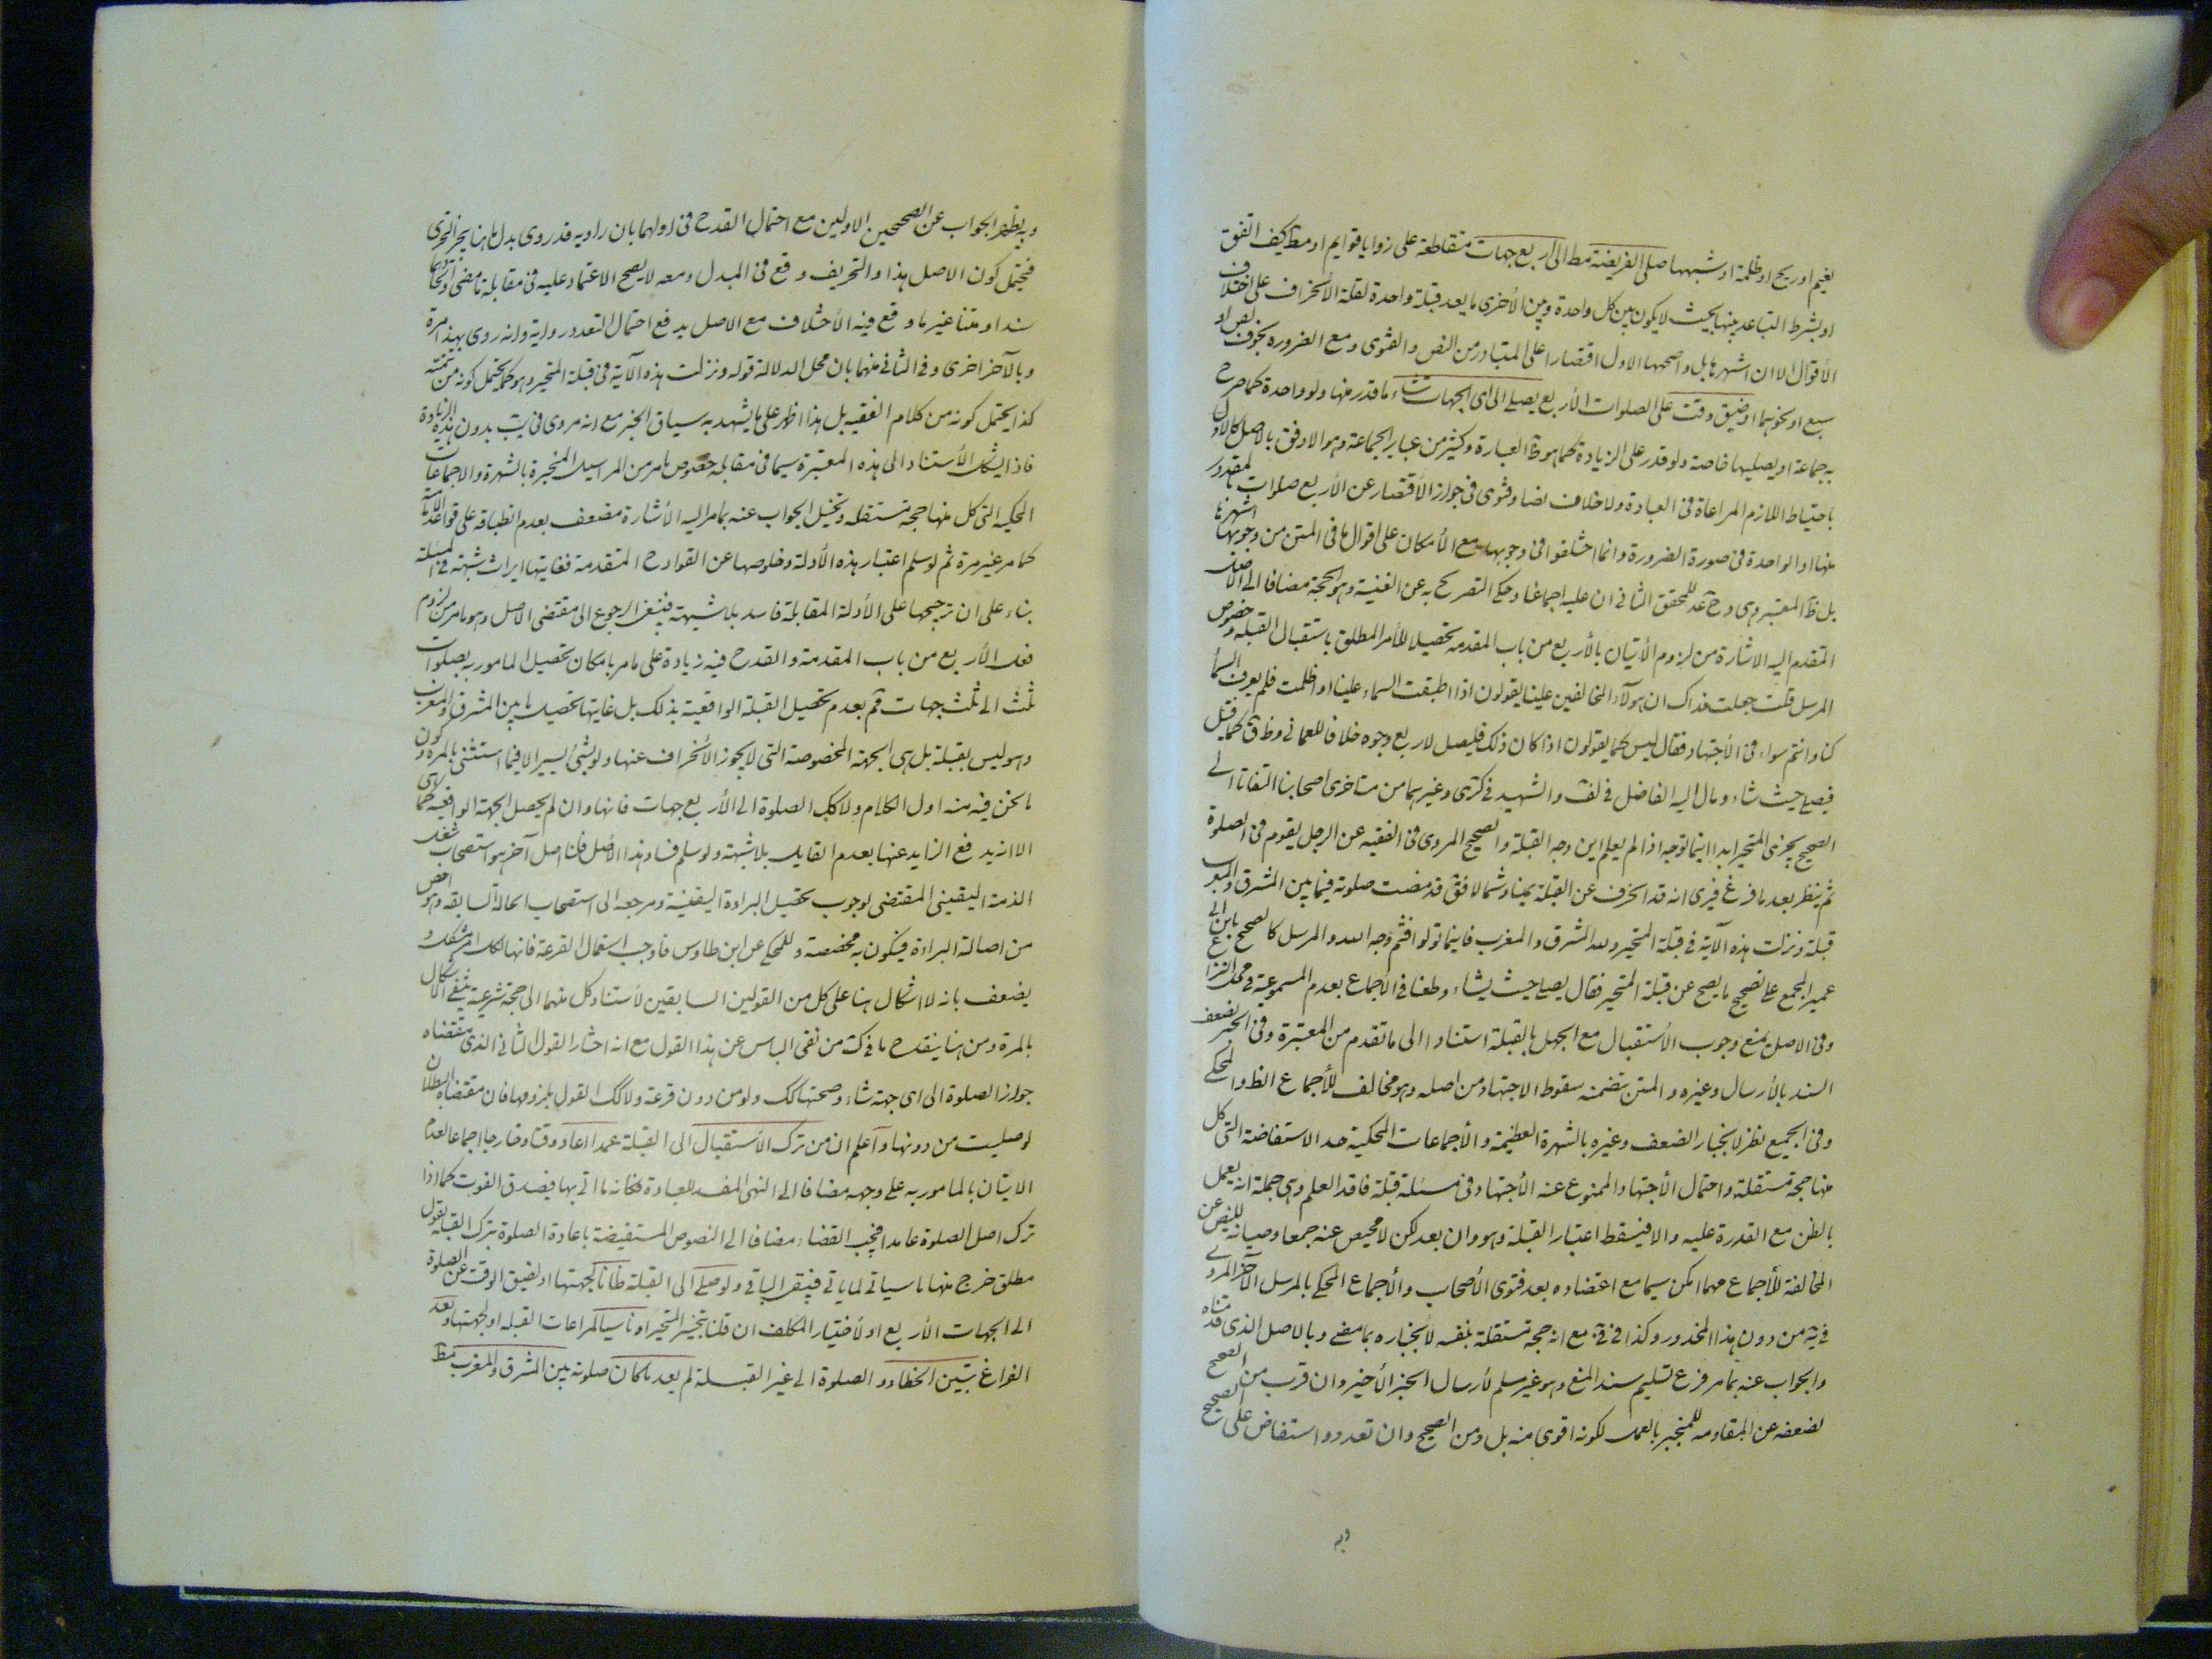 لغيم او ريح او ظلمة او شبهها صلى الفريضة مط الى اربع جهات متقاطعة على زوايا قوايم او مط كيف اتفق
او بشرط التباعد بينها بحيث لا يكون بين كل واحدة وبين الأخرى ما يعد قبلة واحدة لقلة الأنحراف على اختلاف
الأقوال الا ان اشهرها بل واصحها الاول اقتصارا على المتبادر من النص والفتوى ومع الضرورة بخوف لص او
سبع او نحوهما او ضيق وقت على الصلوات الأربع يصلي الى اى الجهات شاء ما قدر منها ولو واحدة كما صرح
به جماعة او يصليها خاصة ولو قدر على الزيادة كما هو ظ العبارة وكثير من عباير الجماعة وهو الاوفق بالاصل كالاول
باحتياط اللازم المراعاة فى العبادة ولا خلاف نصا وفتوى فى جواز الأقتصار عن الأربع صلوات بالمقدور
منها او الواحدة فى صورة الضرورة وانما اختلفوا فى وجوبها مع الأمكان على اقوال ما فى المتن من وجوبها اشهرها
بل ظ المعتبر وى وح عد للمحقق الثانى ان عليه اجماعنا وحكى التصريح به عن الغنية وهو الحجة مضافا الى الاصل
المتقدم اليه الاشارة من لزوم الأتيان بالأربع من باب المقدمه تحصيلا للأمر المطلق باستقبال القبله وخصوص
المرسل قلت جعلت فداك ان هولاء المخالفين علينا يقولون اذا اطبقت السماء علينا او اظلمت فلم يعرف السماء
كنا وانتم سواء فى الأجتهاد فقال ليس كما يقولون اذا كان ذلك فليصل لاربع وجوه خلافا للعمانى وظ ق كما قيل
فيصلي حيث شاء ومال اليه الفاضل في لف والشهيد في كرى وغيرهما من متاخرى اصحابنا التفاتا الى
الصحيح يجزى المتحير ابدا اينما توجه اذا لم يعلم اين وجه القبلة والصحيح المروى فى الفقيه عن الرجل يقوم فى الصلوة
ثم ينظر بعد ما فرغ فيرى انه قد انحرف عن القبلة يمينا وشمالا فق قد مضت صلوته فيما بين المشرق والمغرب
قبلة ونزلت هذه الآية فى قبلة المتحير ولله المشرق والمغرب فاينما تولوا فثم وجه الله والمرسل كالصحيح بابن ابى
عمير المجمع على تصحيح ما يصح عن قبلة المتحير فقال يصلى حيث يشاء وطعنا فى الاجماع بعدم المسموعية فى محل النزاع
وفى الاصل بمنع وجوب الأستقبال مع الجهل بالقبلة استنادا الى ما تقدم من المعتبرة وفى الخبر بضعف
السند بالأرسال وغيره والمتن بتضمنه سقوط الاجتهاد من اصله وهو مخالف للأجماع الظ والمحكى
وفى الجميع نظر لانجبار الضعف وغيره بالشهرة العظيمة والأجماعات المحكية حد الاستفاضة التى كل
منها حجة مستقلة واحتمال الأجتهاد الممنوع عنه الأجتهاد فى مسئلة قبلة فاقد العلم وهى جملة انه يعمل
بالظن مع القدرة عليه والا فيسقط اعتبار القبلة وهو وان بعد لكن لا محيص عنه جمعا وصيانة للنص عن
المخالفة للأجماع مهما امكن سيما مع اعتضاده بعد فتوى الأصحاب والأجماع المحكى بالمرسل الآخر المروى
في يه من دون هذا المحذور وكذا فى فى مع انه حجة مستقلة بنفسه لانجباره بما مضى وبالاصل الذى قدمناه
والجواب عنه بما مر فرع تسليم سند المنع وهو غير سلم لأرسال الخبر الأخير وان قرب من الصحيح
لضعفه عن المقاومه للمنجبر بالعمل لكونه اقوى منه بل ومن الصحيح وان تعدد واستفاض على الصحيح
وبه
وبه يظهر الجواب عن الصحيحين الاولين مع احتمال القدح فى اولهما بان راويه قد روى بدل ما هنا يجزى التحرى
فيحتمل كون الاصل هذا والتحريف وقع فى المبدل ومعه لا يصح الاعتماد عليه فى مقابلة ما مضى واتحادهما
سندا ومتنا غير ما وقع فيه الأختلاف مع الاصل يدفع احتمال التعدد رواية وانه روى بهذا مرة
وبالآخر اخرى وفى الثانى منهما بان محل الدلالة قوله ونزلت هذه الآية فى قبلة المتحير وهو كما يحتمل كونه من تتمته
كذا يحتمل كونه من كلام الفقيه بل هذا اظهر على ما يشهد به سياق الخبر مع انه مروى فى يب بدون هذه الزيادة
فاذا يشكل الأستناد الى هذه المعتبرة سيما فى مقابلة خصوص ما مر من المراسيل المنجبرة بالشهرة والاجماعات
المحكيه التى كل منها حجة مستقله وتخيل الجواب عنه بما مر اليه الأشارة مضعف بعدم انطباقه على قواعدنا الآتية
كما مر غير مرة ثم لو سلم اعتبار هذه الأدلة وخلوصها عن القوادح المتقدمة فغايتها ايراث شبهة فى المسئلة
بناء على ان ترجيحها على الأدلة المقابلة فاسد بلا شبهة فينبغى الرجوع الى مقتضى الاصل وهو ما مر من لزوم
فعل الأربع من باب المقدمة والقدح فيه زيادة على ما مر بامكان تحصيل المامور به بصلوات
ثلث الى ثلث جهات ثم بعدم تحصيل القبلة الواقعية بذلك بل غايتها تحصيل ما بين المشرق والمغرب
وهو ليس بقبلة بل هى الجهة المخصوصة التى لا يجوز الأنحراف عنها ولو بشئ يسير الا فيما استثنى بالمرة وكون
ما نحن فيه منه اول الكلام ولا كك الصلوة الى الأربع جهات فانها وان لم يحصل الجهة الواقعية كما هى
الا انه يدفع الزايد عنها بعدم القايل بلا شبهة ولو سلم فساد هذا الأصل فلنا اصل آخر هو استصحاب شغل
الذمة اليقينى المقتضى لوجوب تحصيل البراءة اليقينية ومرجعه الى استصحاب الحالة السابقه وهو اخص
من اصالة البراءة فيكون به مخصصة وللمحكى عن ابن طاوس فاوجب استعمال القرعة فانها لكل امر مشكل و
يضعف بانه لا اشكال هنا على كل من القولين السابقين لأستناد كل منهما الى حجة شرعية ينفى الاشكال
بالمرة ومن هنا ينقدح ما فى ك من نفى الباس عن هذا القول مع انه اختار القول الثانى الذى مقتضاه
جواز الصلوة الى اى جهة شاء وصحتها كك ولو من دون قرعة ولا كك القول بلزومها فان مقتضاه البطلان
لو صليت من دونها واعلم ان من ترك الاستقبال الى القبلة عمدا اعاد وقتا وخارجا اجماعا لعدم
الاتيان بالمامور به على وجهه مضافا الى النهى المفسد للعبادة فكانه ما اتى بها فيصدق الفوت كما اذا
ترك اصل الصلوة عامدا فيجب القضاء مضافا الى النصوص المستفيضة باعادة الصلوة بترك القبلة بقول
مطلق خرج منها ما سياتى لما ياتى فيبقى الباقى ولو صلى الى القبلة ظانا لجهتها او لضيق الوقت عن الصلوة
الى الجهات الأربع او لأختيار المكلف ان قلنا بتخيير المتحير او ناسيا لمراعات القبله او لجهتها وبعد
الفراغ تبين الخطاء والصلوة الى غير القبلة لم يعد ما كان صلوته بين المشرق والمغرب مط